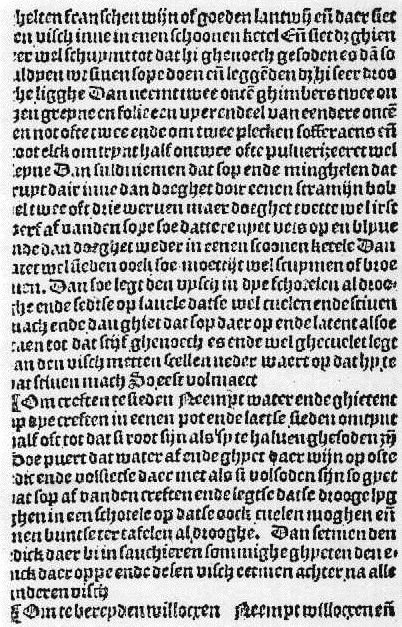 helten franschen wijn of goeden lantwijn eñ daer siet
en visch inne in eenen schoonen ketel Eñ siet dz ghien
er wel schuymt tot dat hi ghenoech gesoden es dā so
uldyen wt sinen sope doen eñ leggēden dz hi seer droo
he ligghe Dan neemt twee oncē ghimbers twee on
zen greyne en folie een vyerendeel van eender oncen
en not ofte twee ende om twee plecken sofferaens eñ
toot elck omtrynt half ontwee ofte pulverizeeret wel
eyne Dan suldi niemen dat sop ende minghelen dat
ruyt dair inne dan doeghet doir eenen stramijn
el twee oft drie werven maer doeghet vette wel irst
af vanden sope
nde dan doeghet weder in eenen scoonen ketele Dan
latet wel sieden oock soe moettijt wel scuymen of broe
uen. Dan soe legt den vysch in dye schotelen al droo
ghe ende setse op datse wel cuelen ende stiven
mach ende dan ghiet dat sop daer op ende latent alsoe
staen tot dat stijf ghenoech es ende wel ghecuelet legt
an den visch metten scellen neder waert op dat hy te
bat stiven mach So eest volmaect
¶ Om creften te sieden Neempt water ende ghietent
op dye creften in eenen pot ende laetse sieden omtrynt
half oft tot dat si root sijn als sy te halven ghesoden zij
Doe puert dat water af ende ghyet daer wijn op ofte
edic ende volsietse daer met als si volsoden sijn so gyet
dat sop af vanden creften ende legtse datse drooge lyg
ghen in een schotele op datse oock cuelen moghen eñ
men buntse ter tafelen al drooghe. Dan setmen den
edick daer bi in sauchieren sommighe ghyeten den e-
dick daer oppe ende desen visch eetmen achter na alle
anderen visch
¶ Om te bereyden willocxen Neempt willocxen eñ